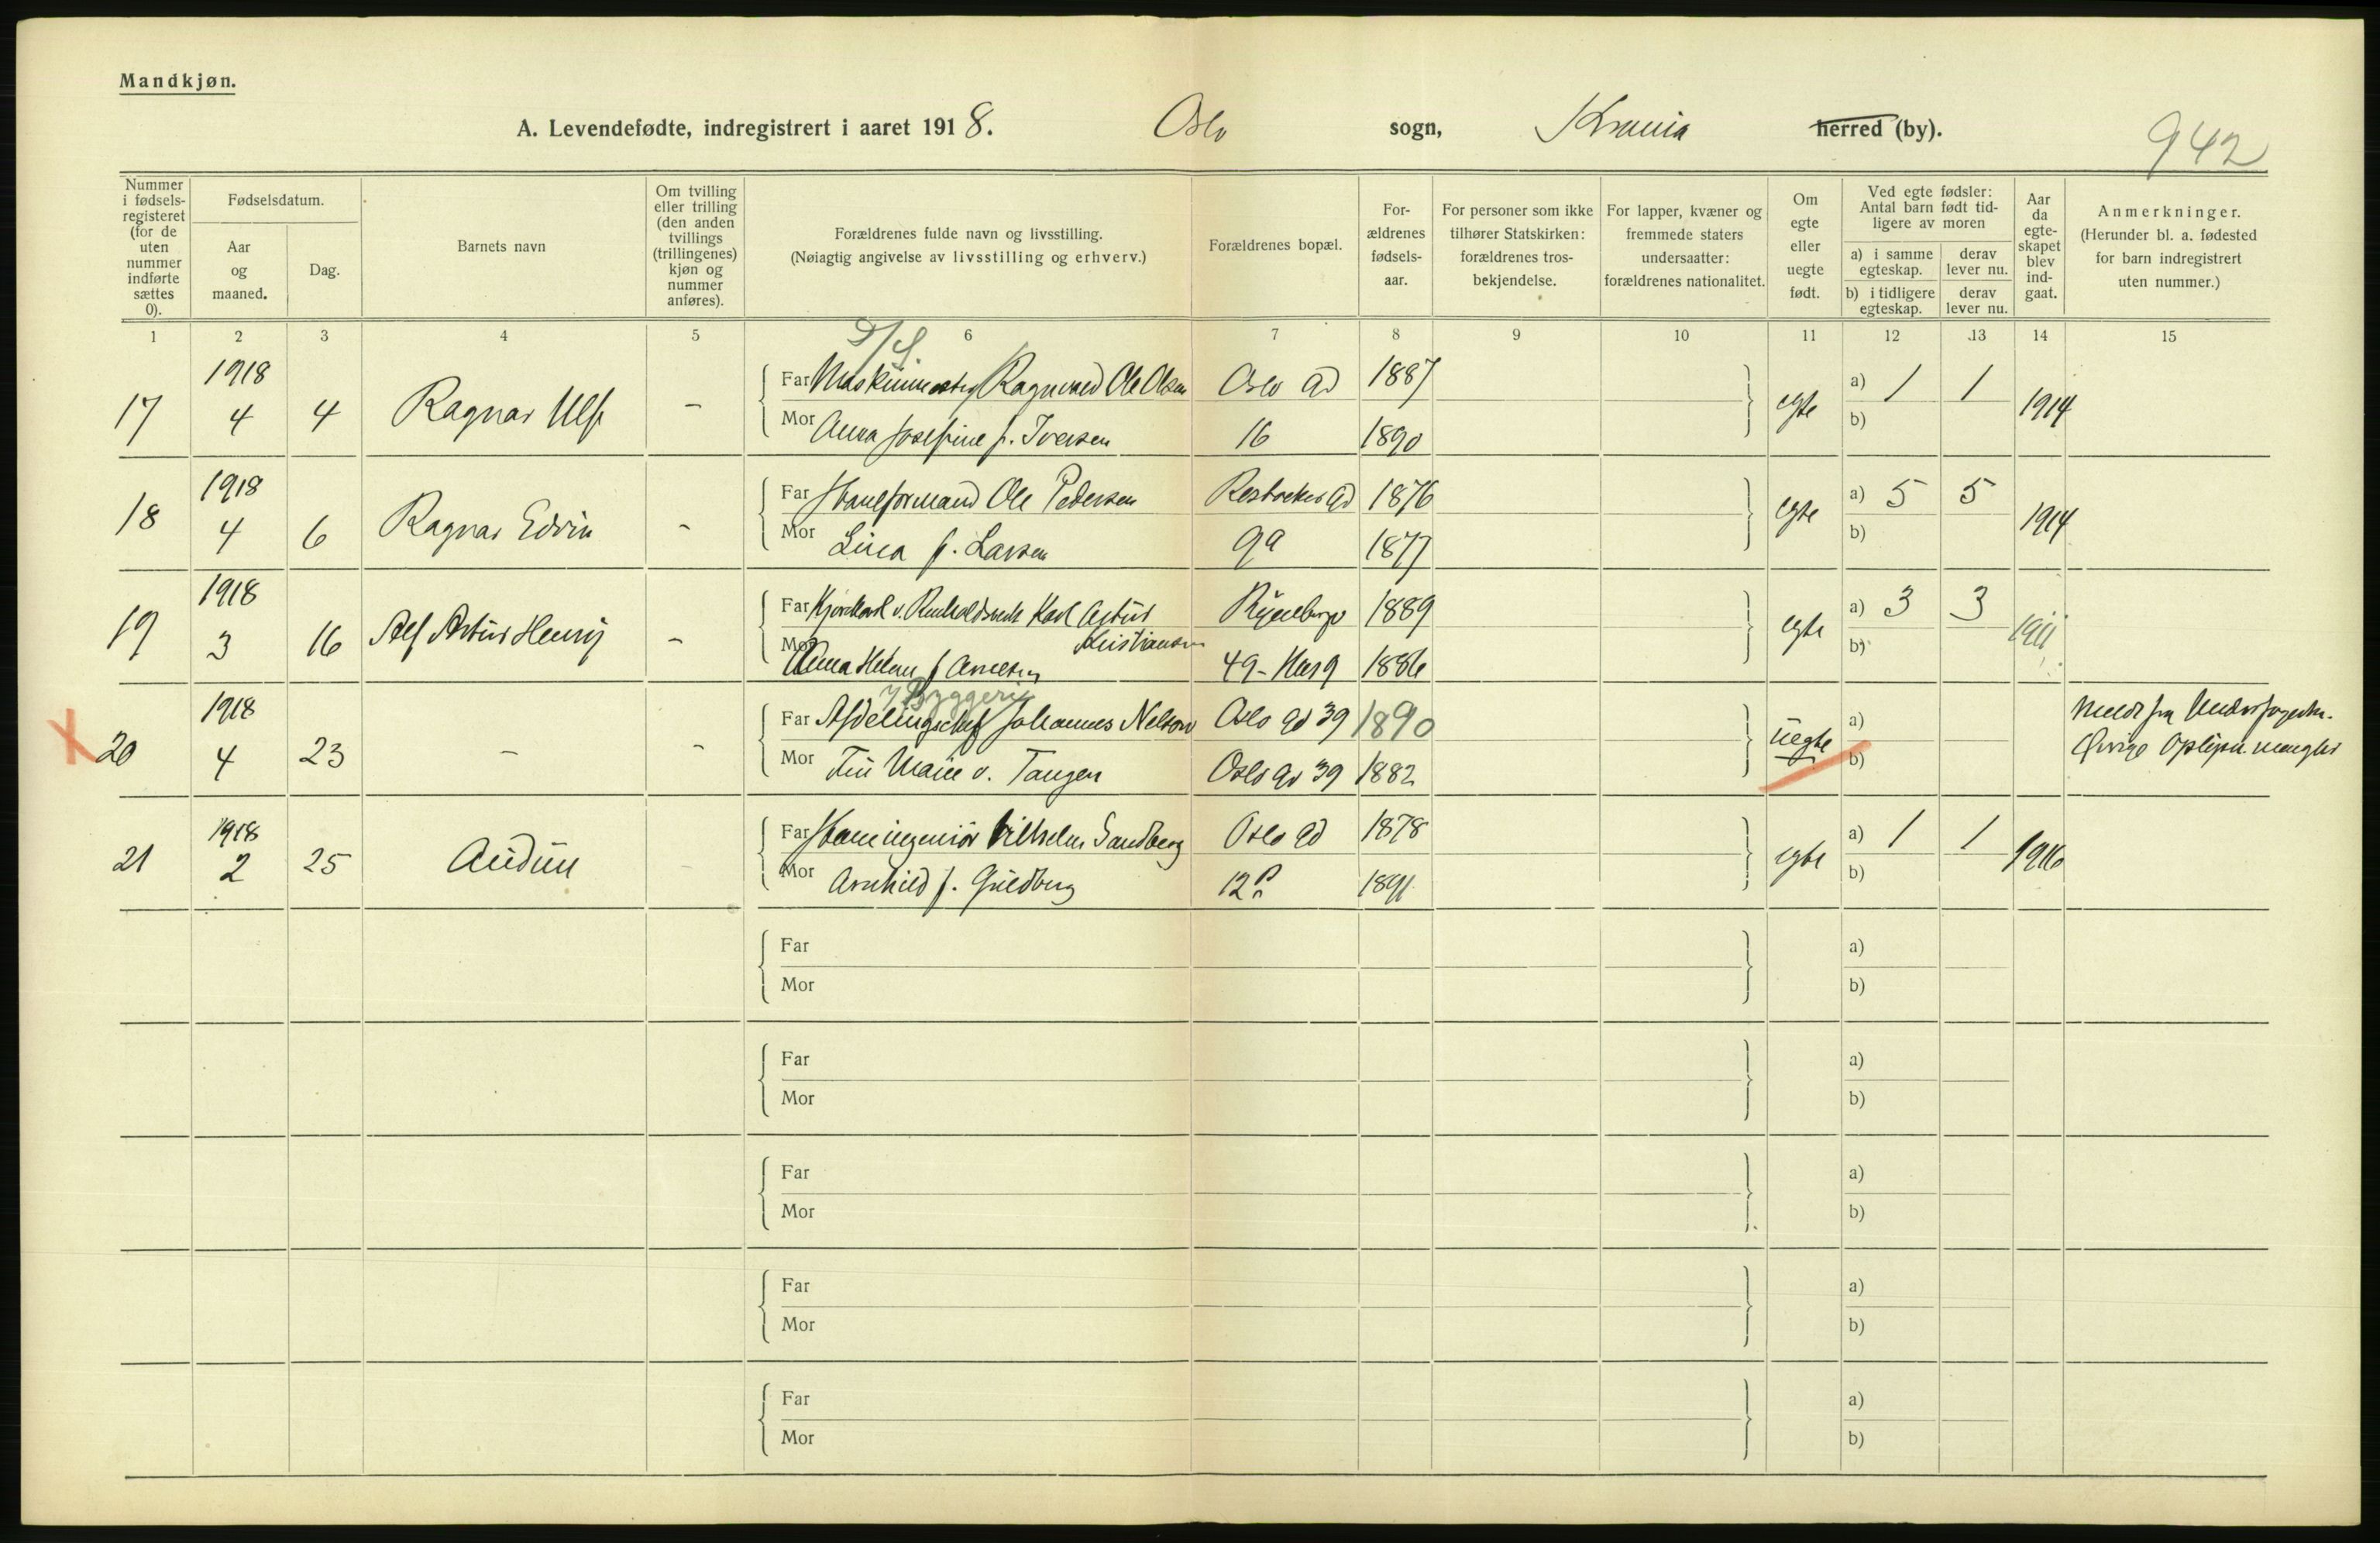 Mandkjøn.
A. Levendefødte, indregistrert i aaret 1918. Oslo sogn, Krania herred (by).
942
Nummer i fødsels-registeret (for de uten nummer indførte sættes 0).
Fødselsdatum.
Aar og maaned.
Dag.
Barnets navn
Om tvilling eller trilling (den anden tvillings (trillingenes) kjøn og nummer anføres).
Forældrenes fulde navn og livsstilling.
(Nøiagtig angivelse av livsstilling og erhverv.)
Forældrenes bopæl.
For-ældrenes fødsels-aar.
For personer som ikke tilhører Statskirken: forældrenes tros-bekjendelse.
For lapper, kvæner og fremmede staters undersaatter: forældrenes nationalitet.
Om egte eller uegte født.
Ved egte fødsler: Antal barn født tid-ligere av moren
a) i samme egteskap.
derav lever nu.
b) i tidligere egteskap.
derav lever nu.
Aar da egte-skapet blev ind-gaat.
Anmerkninger.
(Herunder bl. a. fødested for barn indregistrert uten nummer.)
1 2 3 4 5 6 7 8 9 10 11 12 13 14 15
D/S.
17 1918 4 4 Ragnar Ulf - Far Maskinmester Ragnvald Ole Olsen Oslo gd 1887 egte a) 1 1 1914
Mor Anna Josefine f. Iversen 16 1890 b)
18 1918 4 6 Ragnar Edvin - Far Ole Pedersen gd 1876 egte a) 5 5 1914
Mor Lina f. Larsen 9a 1877 b)
19 1918 3 16 Alf Artur Henry - Far Kjørekarl v. Renholdsverk Karl Artur Kristiansen Ryenberg 1889 egte a) 3 3 1911
Mor Anna Helene f Arnesen 49 - Hus 9 1886 b)
i Byggeri
X 20 1918 4 23 - - Far Afdelingschef Johannes Nelson Oslo gd 39 1890 uegte a) Meldt fra
Mor Marie v. Tangen Oslo gd 39 1882 b) Øvrige Oplysn. mangler
21 1918 2 25 Audun - Far Vilhelm Sandberg Oslo gd 1878 egte a) 1 1 1916
Mor Arnhild f. Guldberg 12 1891 b)
Far a)
Mor b)
Far a)
Mor b)
Far a)
Mor b)
Far a)
Mor b)
Far a)
Mor b)